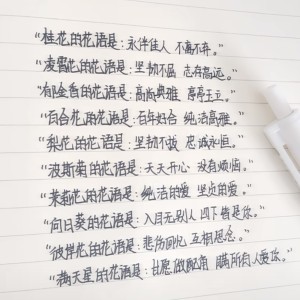 “桂花的花语是：永伴佳人 不离不弃。”
“凌霄花的花语是：坚韧不屈 志存高远。”
“郁金香的花语是：高尚典雅 亭亭玉立。”
“百合花的花语是：百年好合 纯洁高雅。”
“梨花的花语是：坚韧不拔 忠诚永恒。”
“波斯菊的花语是：天天开心 没有烦恼。”
“茉莉花的花语是：纯洁的爱 坚贞的爱。”
“向日葵的花语是：入目无别人 四下皆是你。”
“彼岸花的花语是：悲伤回忆 互相思念。”
“满天星的花语是：甘愿做配角 瞒所有人爱你。”